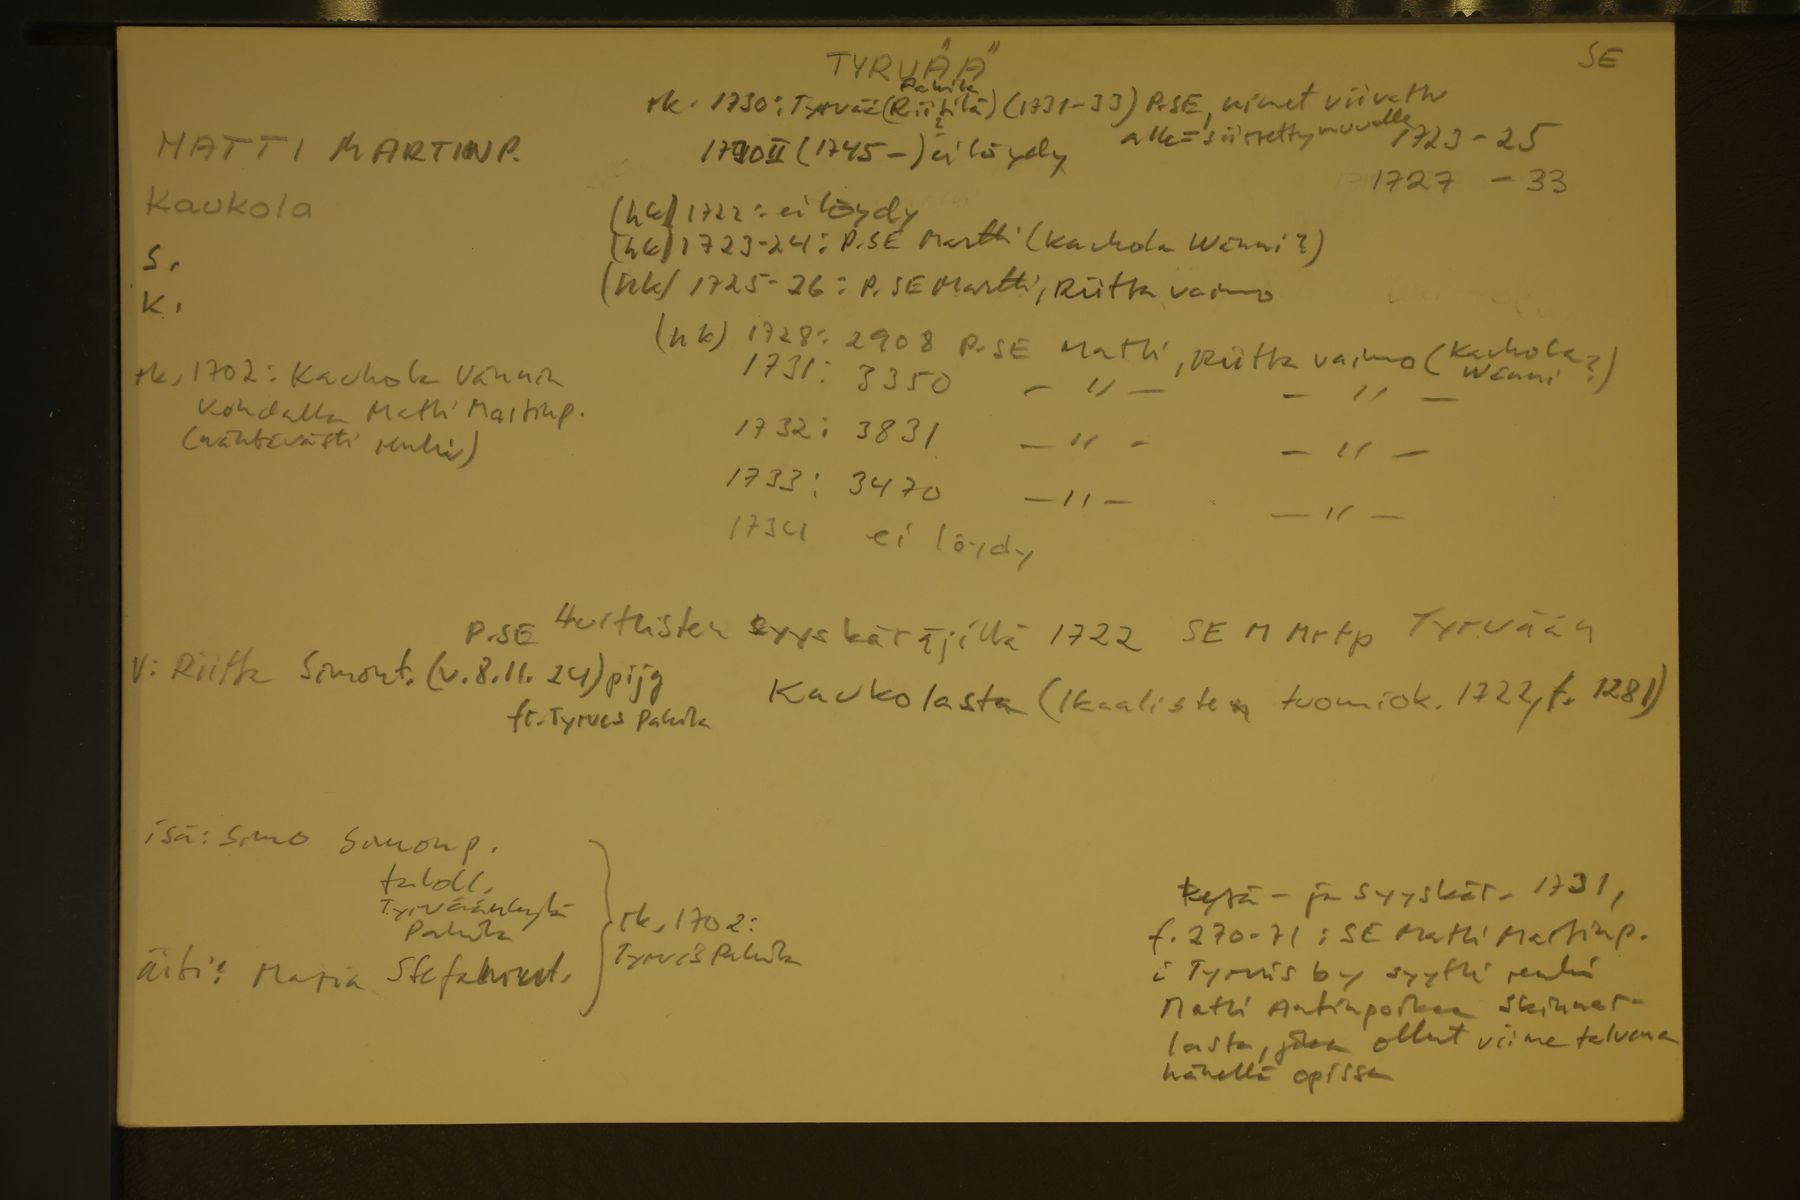 TYRVÄÄ
SE
rk. 1730: Tyrvää (Riitilä) (1731-33) P.SE, nimet viivattu
Pahila
?
alle = siirretty muualle
MATTI MARTINP.
II (1745-) ei löydy
1723-25
1727 - 33
Kaukola
(hk) 1722: ei löydy
(hk) 1723-24: P.SE Martti (Kaukola Wänni?)
S.
(hk) 1725-26: P.SE Martti, Riitta vaimo
K.
(hk) 1728: 2908 P.SE Matti, Riitta vaimo (Kaukola Wänni?)
1731: 3350 - " - - " -
rk. 1702: Kaukola Vännin
kohdalla Matti Martinp.
(nähtävästi renki)
1732: 3831 - " - - " -
1733: 3470 - " - - " -
1734 ei löydy
P.SE Huittisten syyskäräjillä 1722 SE M Mrtp Tyrvään
Kaukolasta (Ikaalisten tuomiok. 1722, f. 1281)
V: Riitta Simont. (v. 8.11. 24) piga
fr. Tyrvis Pahila
isä: Simo Simonp.
taloll.
Tyrväänkylä
Pahila
äiti: Maria Stefanint.
rk. 1702:
Tyrvis Pahila
kesä- ja syyskär. 1731,
f. 270-71: SE Matti Martinp.
i Tyrvis by syytti renki
Matti Antinpoikaa Skinnar-
lasta, joka ollut viime talvena
hänellä opissa